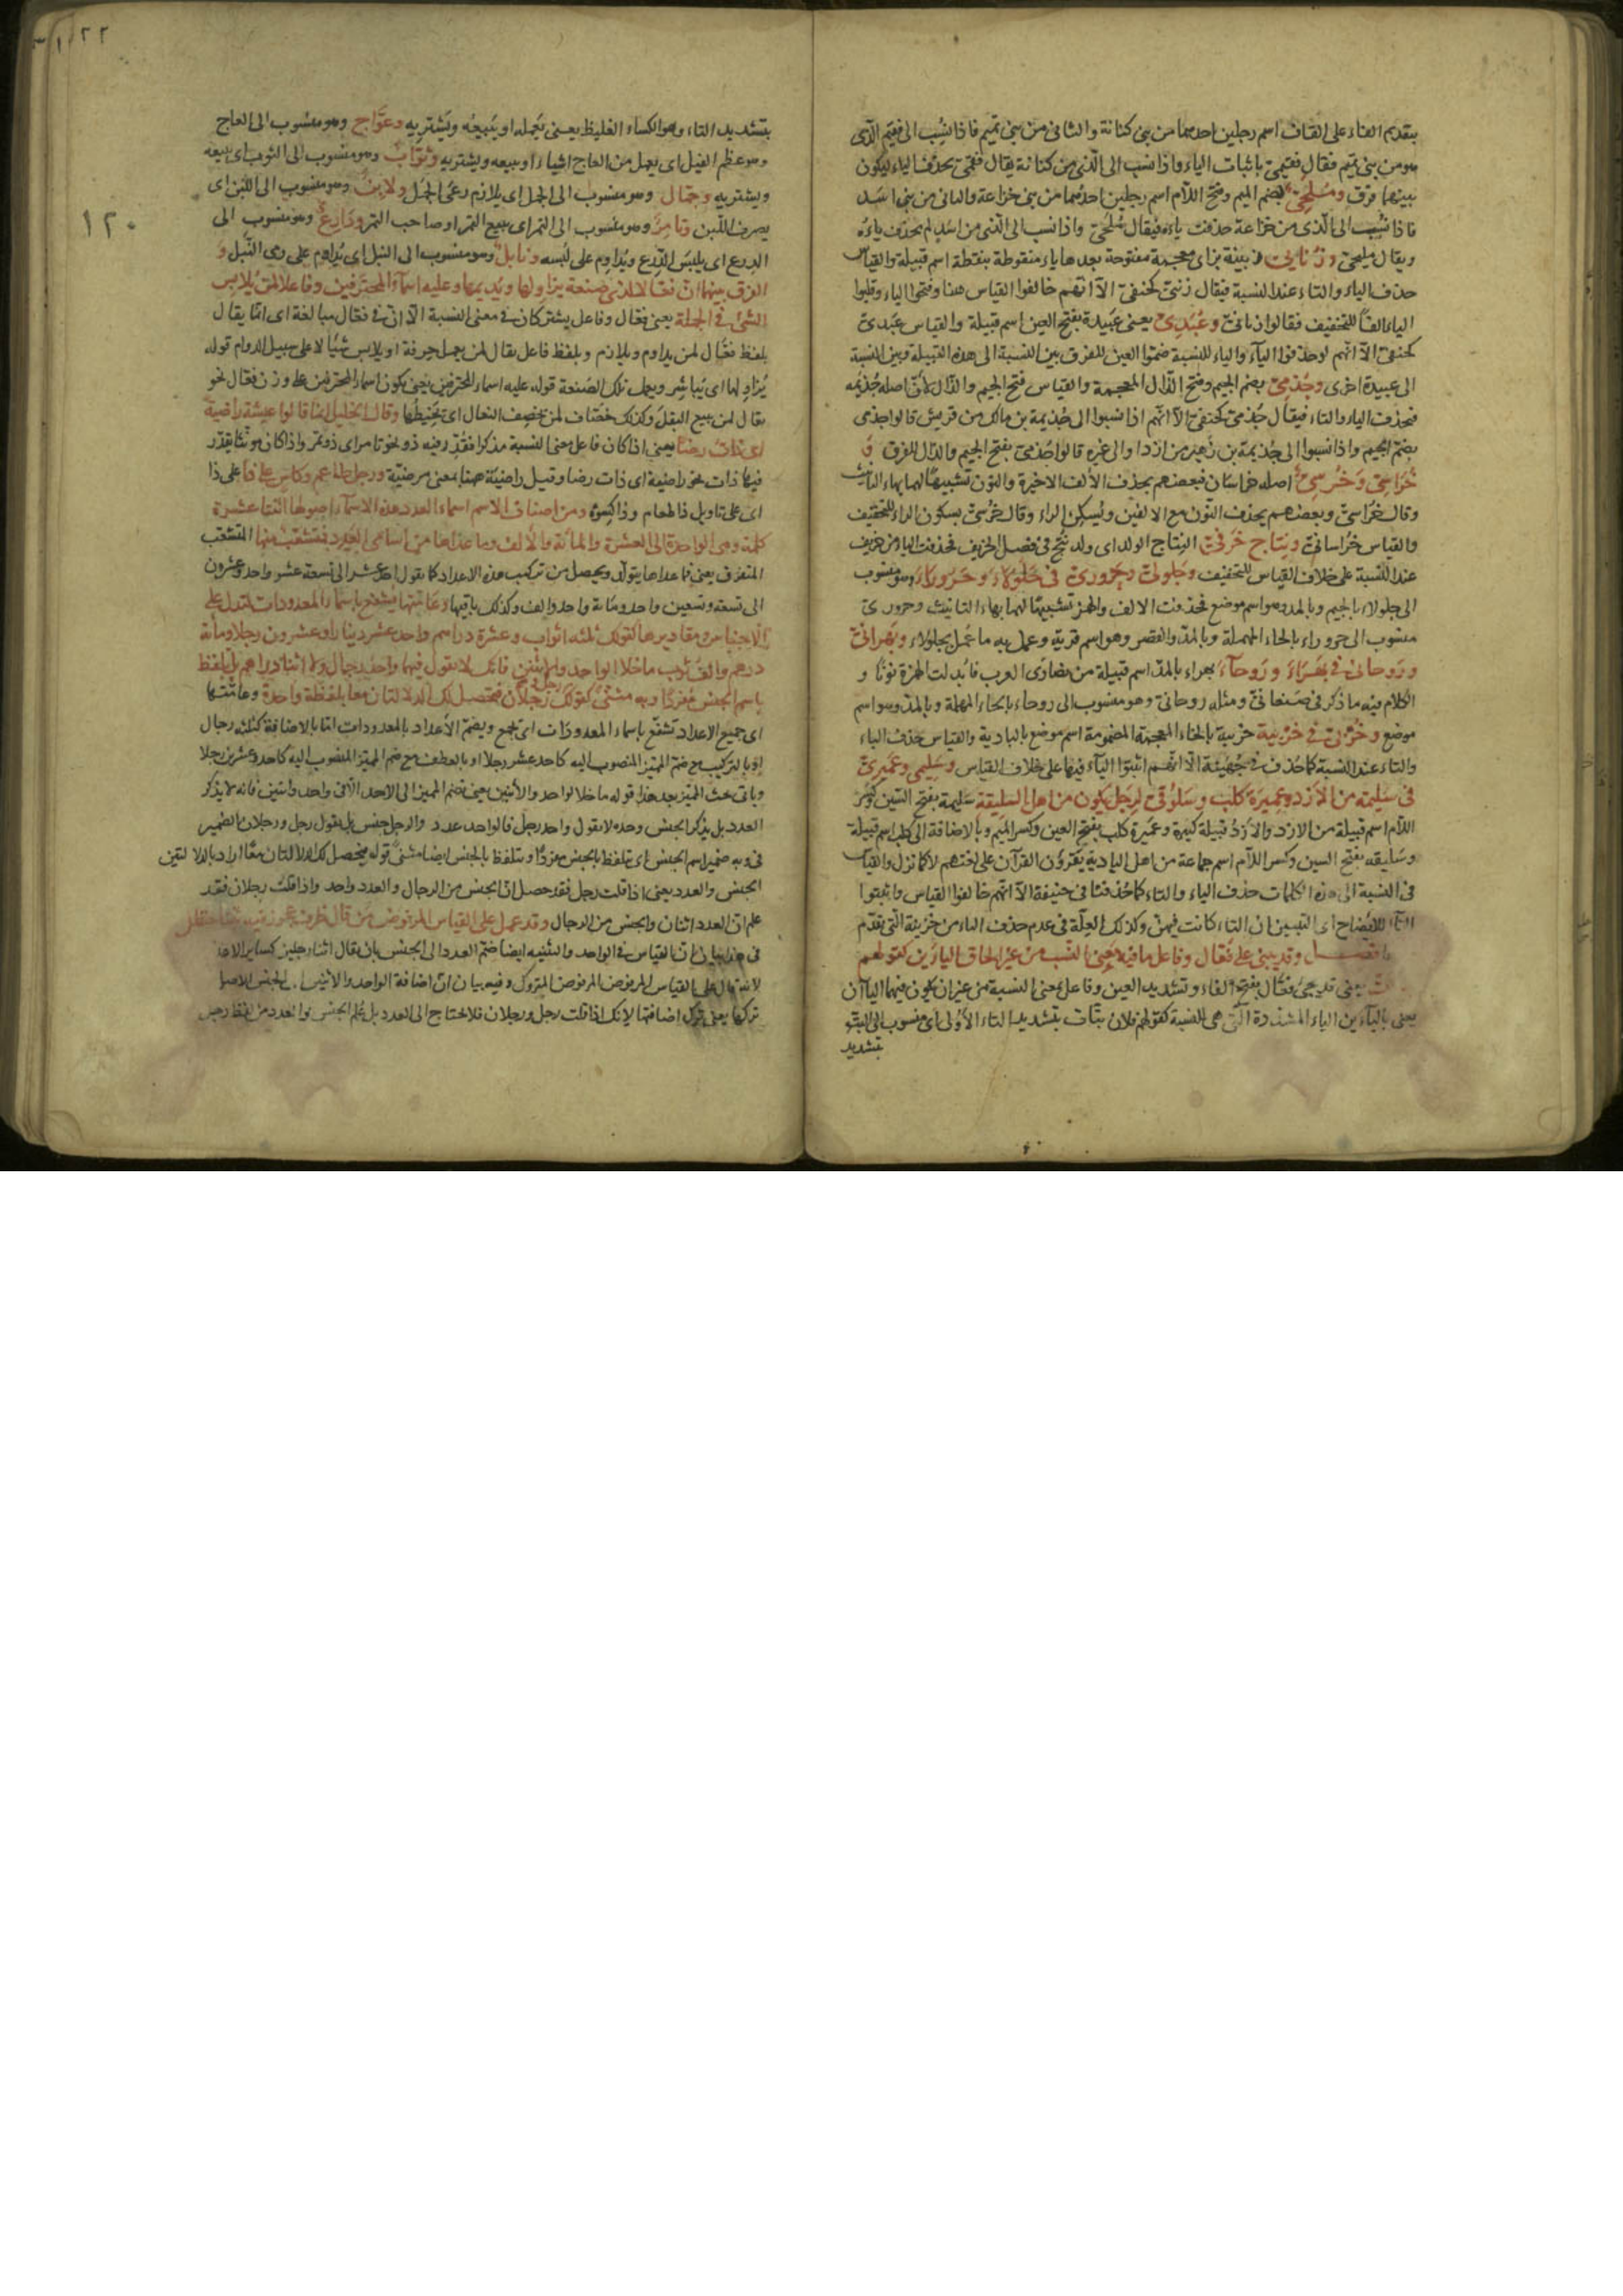 بتقديم الفاء على القاف اسم رجلين احدهما من بنى كنانة والثانى من بنى تميم فاذا نسب الى فقيم الذى
هو من بنى تميم فقال فقيمى باثبات الياء واذا نسب الى الذى من كنانة يقال فقمى بحذف الياء ليكون
بينهما فرق ومُلَحِىّ بضم الميم وفتح اللام اسم رجلين احدهما من بنى خزاعة والثانى من بنى اسد
فاذا نسب الى الذى من خزاعة حذفت ياءه فيقال مُلَحِىّ واذا نسب الى الذى من اسد لم يحذف ياءه
ويقال مليحى وزَبانِىّ زبينة بزاى معجمة مفتوحة بعدها باء منقوطة بنقطة اسم قبيلة والقياس
حذف الياء والتاء عند النسبة فيقال زبنى كحنفى الا انهم خالفوا القياس هنا وفتحوا الباء وقلبوا
الياء الفا للتخفيف فقالوا زبانى وعُبَدِىّ يعنى عَبيدة بفتح العين اسم قبيلة والقياس عَبَدىّ
كحنفى الا انهم لو حذفوا الياء والتاء للنسبة ضموا العين للفرق بين النسبة الى هذه القبيلة وبين النسبة
الى عبيدة اخرى وجُذَمِىّ بضم الجيم وفتح الذال المعجمة والقياس فتح الجيم والذال لانّ اصله جُذيمه
فحذف الياء والتاء فيقال جُذمى كحنفى الا انهم اذا نسبوا الى جُذيمة بن مالك من قريش قالوا جذمى
بضم الجيم واذا نسبوا الى جُذيمة بن زُهير من ازد او الى غيره قالوا جَذَمىّ بفتح الجيم والذال للفرق و
خُرَاسِىّ وَخُرْسِىّ اصله خراسان فبعضهم بحذف الالف الاخيرة والنون تشبيها لهما بهاء التانيث
وقال خُراسىّ وبعضهم بحذف النون مع الالفين ويُسكِن الراء وقال خُرْسىّ بسكون الراء للتخفيف
والقياس خُراسانىّ ونِتاج خَرَفىّ النِتاج الولد اى ولد نُتِج فى فصل الخريف فحذفت الياء من خريف
عند النسبة على خلاف القياس للتخفيف وَجَلولىّ وحَرُورىّ فى جَلُولاءَ وحَرُورَاءَ وهو منسوب
الى جلولاء بالجيم وبالمد وهو اسم موضع فحذفت الالف والهمز تشبيها لهما بهاء التانيث وحرورىّ
منسوب الى حروراء بالحاء المهملة وبالمد والقصر وهو اسم قرية وعمل به ما عُمل بجلولاء وبَهرانىّ
ورَوحانىّ فى بَهْرَاءَ ورَوحَاءَ بهراء بالمد اسم قبيلة من نصارى العرب فابدلت الهمزة نونا و
الكلام فيه ما ذكر فى صنعانىّ ومثله روحانىّ وهو منسوب الى روحاء بالحاء المهملة وبالمد وهو اسم
موضع وخُرَيبىّ فى خُرَيبة خريبة بالخاء المعجمة المضمومة اسم موضع بالبادية والقياس حذف الياء
والتاء عند النسبة كما حُذف فى جُهَينة الا انهم اثبتوا الياء فيها على خلاف القياس وسَلِيمى وعَمِيرىّ
فى سَليمة من الازد وعَمِيرَة كَلْبٍ وسَلِيقىّ لرجل يكون من اهل السليقة سَليمة بفتح السين وكسر
اللام اسم قبيلة من الازد والازدُ قبيلة كبيرة وعَميرة كلب بفتح العين وكسر الميم وبالاضافة الى كلب اسم قبيلة
وسَليقة بفتح السين وكسر اللام اسم جماعة من اهل البادية يقرؤن القرآن على لغتهم لا كما نزل والقياس
فى النسبة الى هذه الكلمات حذف الياء والتاء كما حُذفتا فى حنيفة الا انهم خالفوا القياس واثبتوا
الياء للايضاح اى التبيين ان التاء كانت فيهنّ وكذلك العلة فى عدم حذف الياء من خريبة التى تقدم
فصل وقد يبنى على فَعّال وفاعل ما فيه معنى النسب من غير الحاق الياءَين كقولهم
يعنى قد يجئ فعّال بفتح الفاء وتشديد العين وفاعل بمعنى النسبة من غير ان يكون فيهما الياآن
يعنى بالياءين الياء المشددة التى هى للنسبة كقولهم فلان بتّات بتشديد التاء الاولى اى منسوب الى البتّ
بتشديد
١٢٢
بتشديد التاء وهو الكساء الغليظ يعنى يَعمله او يَبيعُه ويَشتريه وعَوَّاج وهو منسوب الى العاج
وهو عظم الفيل اى يعمل من العاج اشياء او يبيعه ويشتريه وثَوّابٌ وهو منسوب الى الثوب اى يبيعه
ويشتريه وجَمّال وهو منسوب الى الجمل اى يلازم رعى الجمل ولابِنٌ وهو منسوب الى اللبن اى
١٢٠
يصرف اللبن وتامِرٌ وهو منسوب الى التمر اى يبيع التمر او صاحب التمر ودَارِعٌ وهو منسوب الى
الدرع اى يلبس الدرع ويُداوم على لُبسه ونابلٌ وهو منسوب الى النبل اى يُداوم على رمى النَبل و
الفرق بينهما انّ فعّالا لذى صنعة يزاولها ويُديمها وعليه اسماء المحترفين وفاعلا لمن يُلابس
الشئ فى الجملة يعنى فعّال وفاعل يشتركان فى معنى النسبة الا ان فى فعّال مبالغة اى انّما يقال
بلفظ فعّال لمن يداوم ويلازم وبلفظ فاعل يقال لمن يعمل حِرفة او يلابس شيًا لا على سبيل الدوام قوله
يُزاولها اى يُباشِر ويعمل تلك الصَنعة قوله عليه اسماء المحترفين يعنى يكون اسماء المحترفين على وزن فعّال نحو
بقال لمن يبيع البقلَ وكذلك خصّاف لمن يخصِف النعال اى يَخيطُها وقال الخليل انما قالوا عيشة راضية
اى ذات رضًا يعنى اذا كان فاعل بمعنى النسبة مذكرا فقُدّر فيه ذو نحو تامر اى ذو تمر واذا كان مؤنثا يقدّر
فيها ذات نحو راضية اى ذات رضا وقيل راضية ههنا بمعنى مرضيّة ورجل طاعم وكاسٍ على ذا على ذا
اى على تاويل ذا طعام وذا كسوة ومن اصناف الاسم اسماء العدد هذه الاسماء اصولها اثنتا عشرة
كلمة وهى الواحدة الى العشرة والمائة والالف وما عداها من اسامى العدد فمتشعّب منها المتشعّب
المتفرّق يعنى ما عداها يتولّد ويحصل من تركيب هذه الاعداد كما يقول احد عشر الى تسعة عشر واحد وعشرون
الى تسعة وتسعين واحد ومائة واحد والف وكذلك باقيها وعامّتها يُشفع باسماء المعدودات لتدل على
الاجناس ومقاديرها كقولك ثلثة اثواب وعشرة دراهم واحد عشر دينارا وعشرون رجلا ومائة
درهم والف ثوب ما خلا الواحد والاثنين فانك لا تقول فيهما واحد رجال ولا اثنا دراهم بل تلفظ
باسم الجنس مُفردًا وبه مثنّىً كقولك رجل ورجلان فتحصل لك الدلالتان معا بلفظة واحدة وعامّتها
اى جميع الاعداد تشفّع باسماء المعدودات اى يجمع ويضمّ الاعداد بالمعدودات امّا بالاضافة كثلثة رجال
او بالتركيب مع ضمّ المميز المنصوب اليه كاحد عشر رجلا او بالعطف مع ضم المميّز المنصوب اليه كاحد وعشرين رجلا
وياتى بحث المميّز بعد هذا قوله ما خلا الواحد والاثنين يعنى ضم المميز الى الاحد الا فى واحد واثنين فانه لا يذكر
العدد بل يذكر الجنس وحده لا تقول واحد رجل فالواحد عدد والرجل جنس بل تقول رجل ورجلان بالضمير
فى وبه ضمير اسم الجنس اى تلفظ بالجنس مفردًا وتتلفظ بالجنس ايضا مثنىً قوله فيحصل لك الدلالتان معًا اراد بالدلالتين
الجنس والعدد يعنى اذا قلت رجل فقد حصل انّ الجنس من الرجال والعدد واحد واذا قلت رجلان فقد
علم ان العدد اثنان والجنس من الرجال وقد عمل على القياس المرفوض من قال ظرف عجوز فيه ثنتا حنظل
فى هذا بيان ان القياس فى الواحد والتثنيه ايضا ضمّ العدد الى الجنس بان يقال اثنا رجلين كساير الاعداد
لانه قال على القياس المرفوض المرفوض المتروك وفيه بيان انّ اضافة الواحد والاثنين الى الجنس للاصل
تركها يعنى ترك اضافتها لانك اذا قلت رجل ورجلان فلا تحتاج الى العدد بل عُلم الجنس والعدد من لفظ رجل